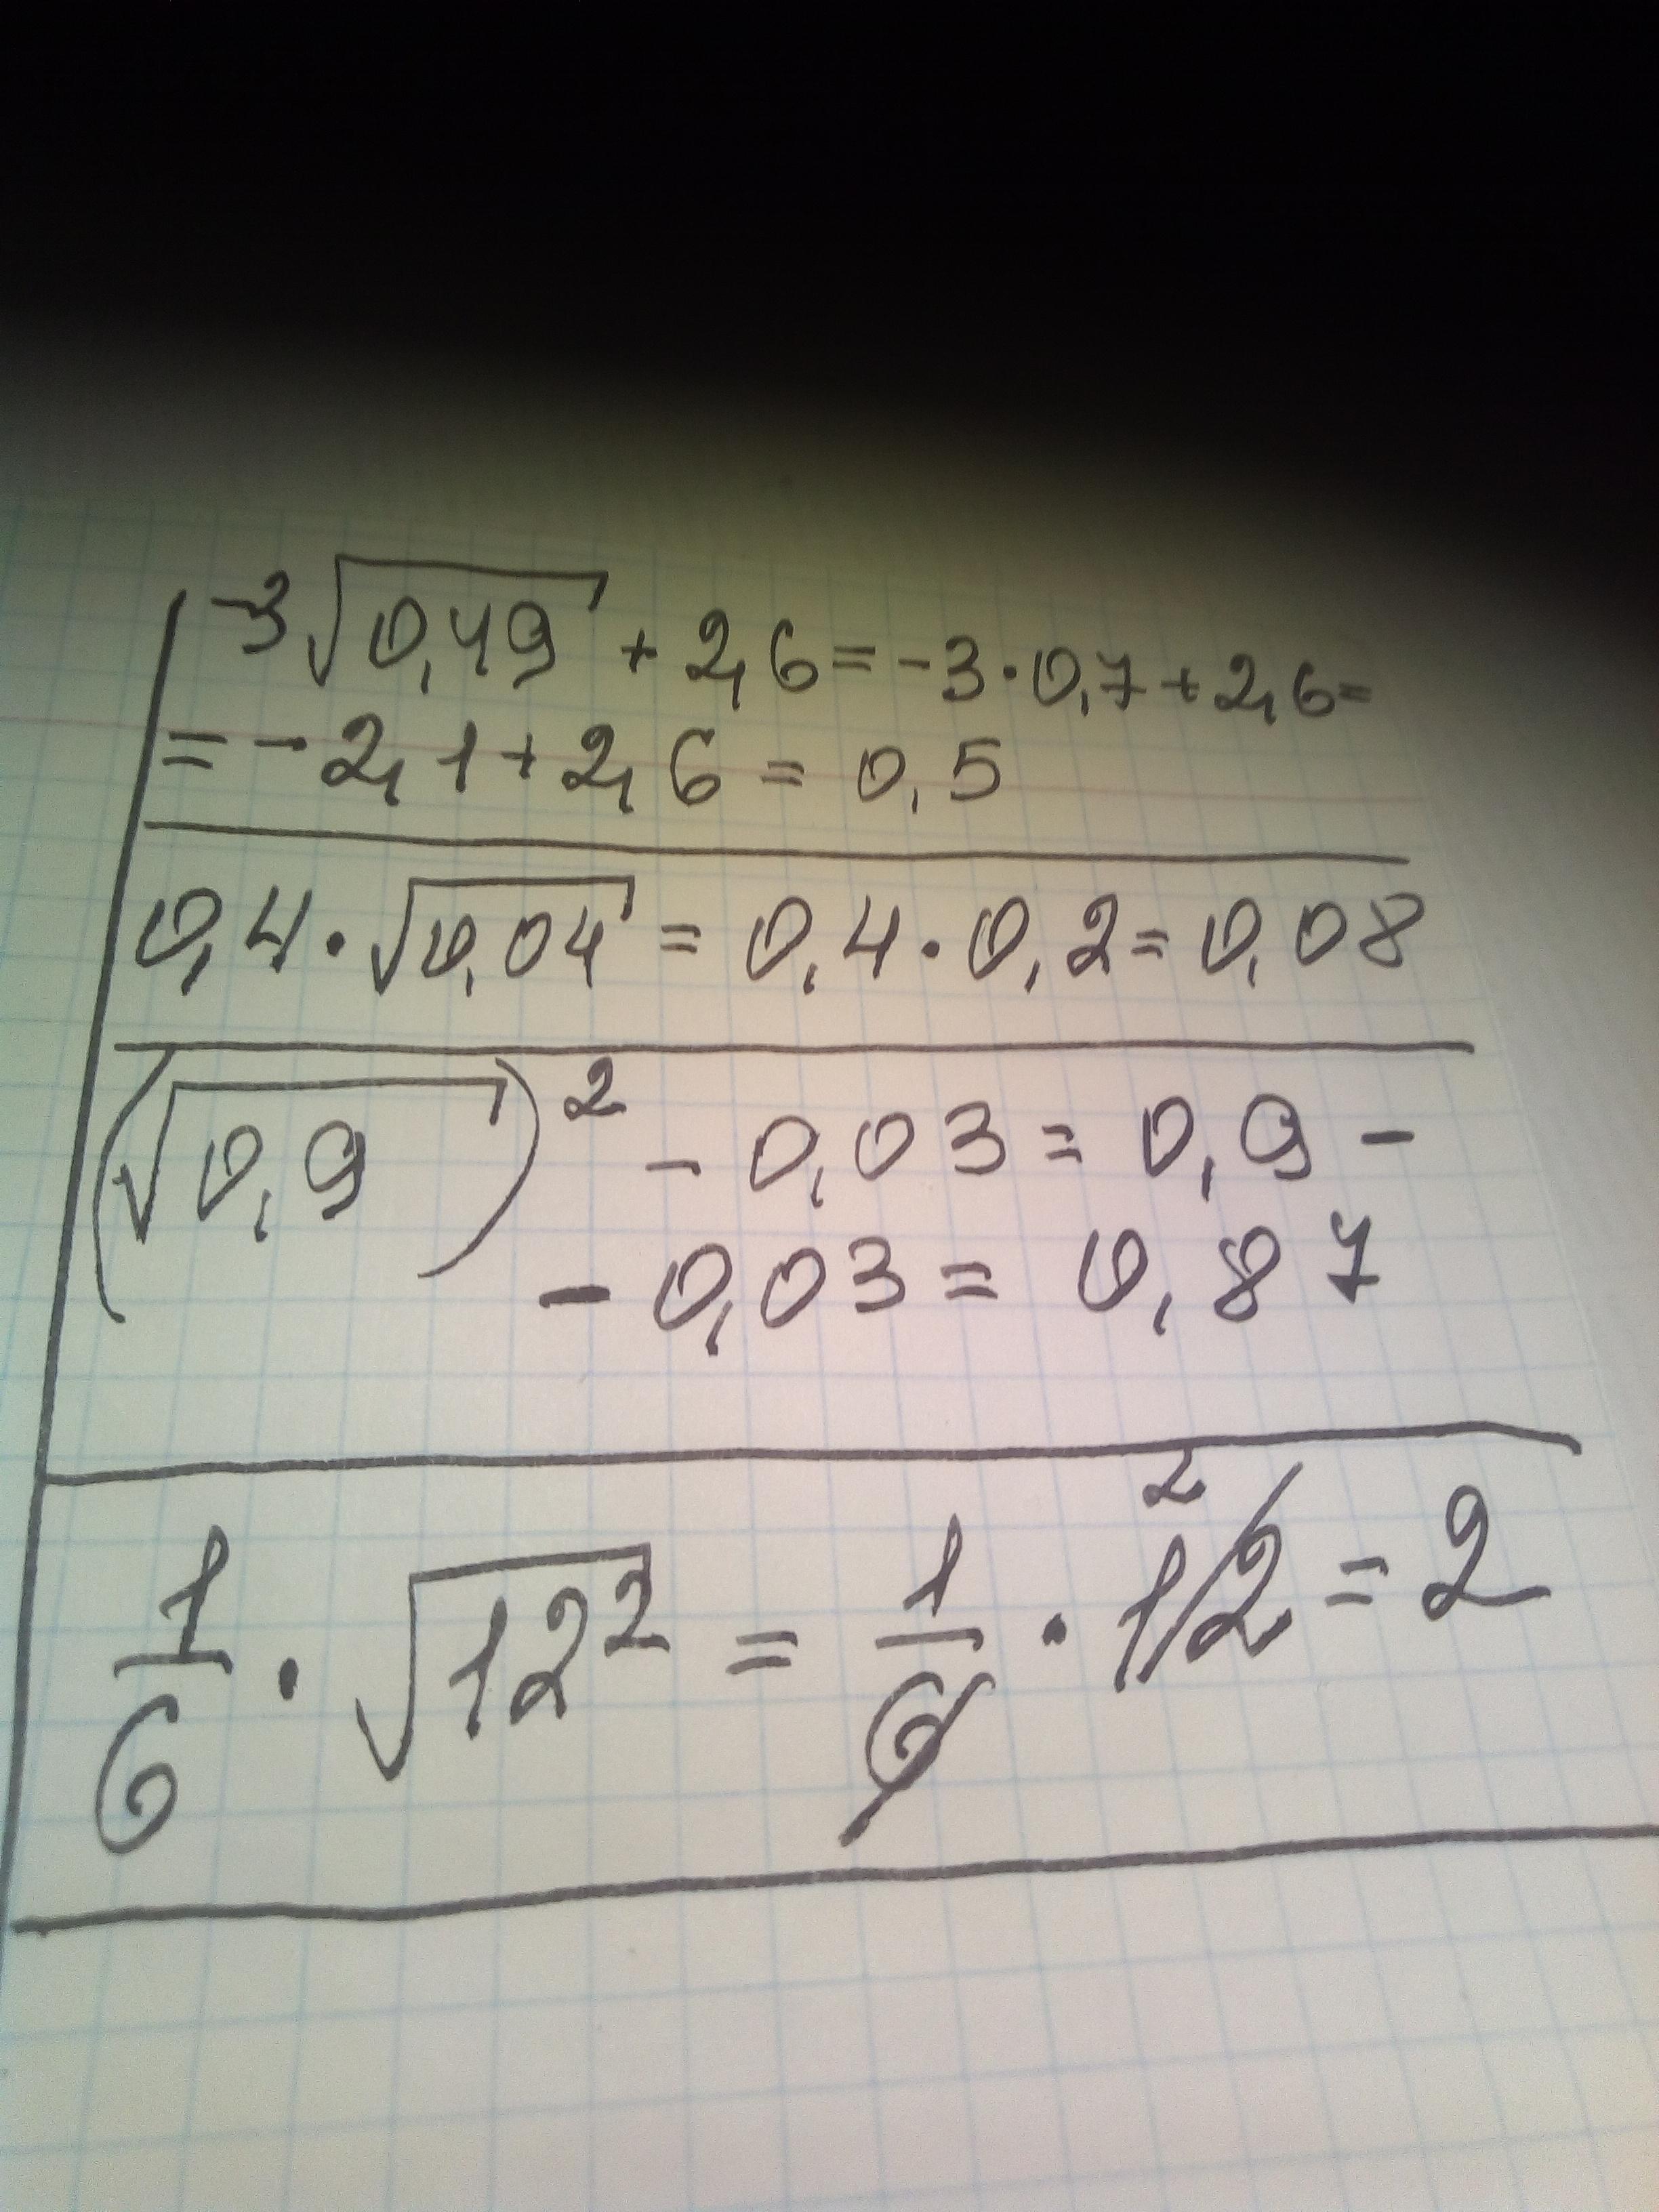 -3√0,49 + 2,6 = -3·0,7 + 2,6 =
= -2,1 + 2,6 = 0,5
0,4 · √0,04 = 0,4 · 0,2 = 0,08
(√0,9)² - 0,03 = 0,9 -
- 0,03 = 0,87
1/6 · √12² = 1/6 · 12 ² = 2